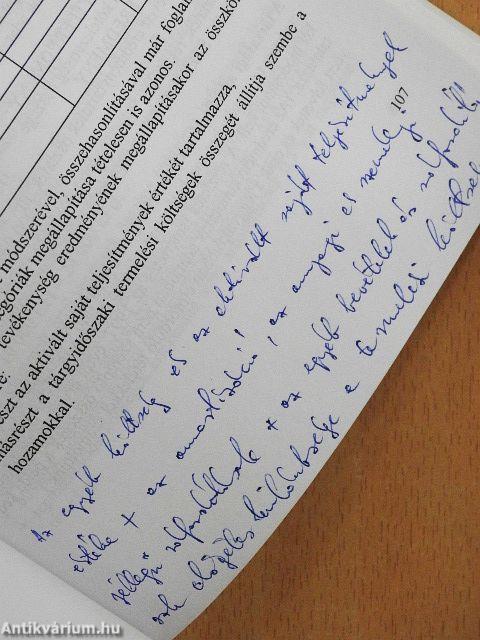 módszerével, összehasonlításával már foglal
góriák megállapítása tételesen is azonos.
evékenység eredményének megállapításakor az összkö
re:
részt az aktivált saját teljesítmények értékét tartalmazza,
másrészt a tárgyidőszaki termelési költségek összegét állítja szembe a
hozamokkal.
107
Az egyéb költség és az aktivált saját teljesítmények
értéke + az amortizáció, az anyagi és
jellegű ráfordítások + az egyéb bevételek és ráfordítá
sok különbsége a termelési költség
Antikvárium.hu